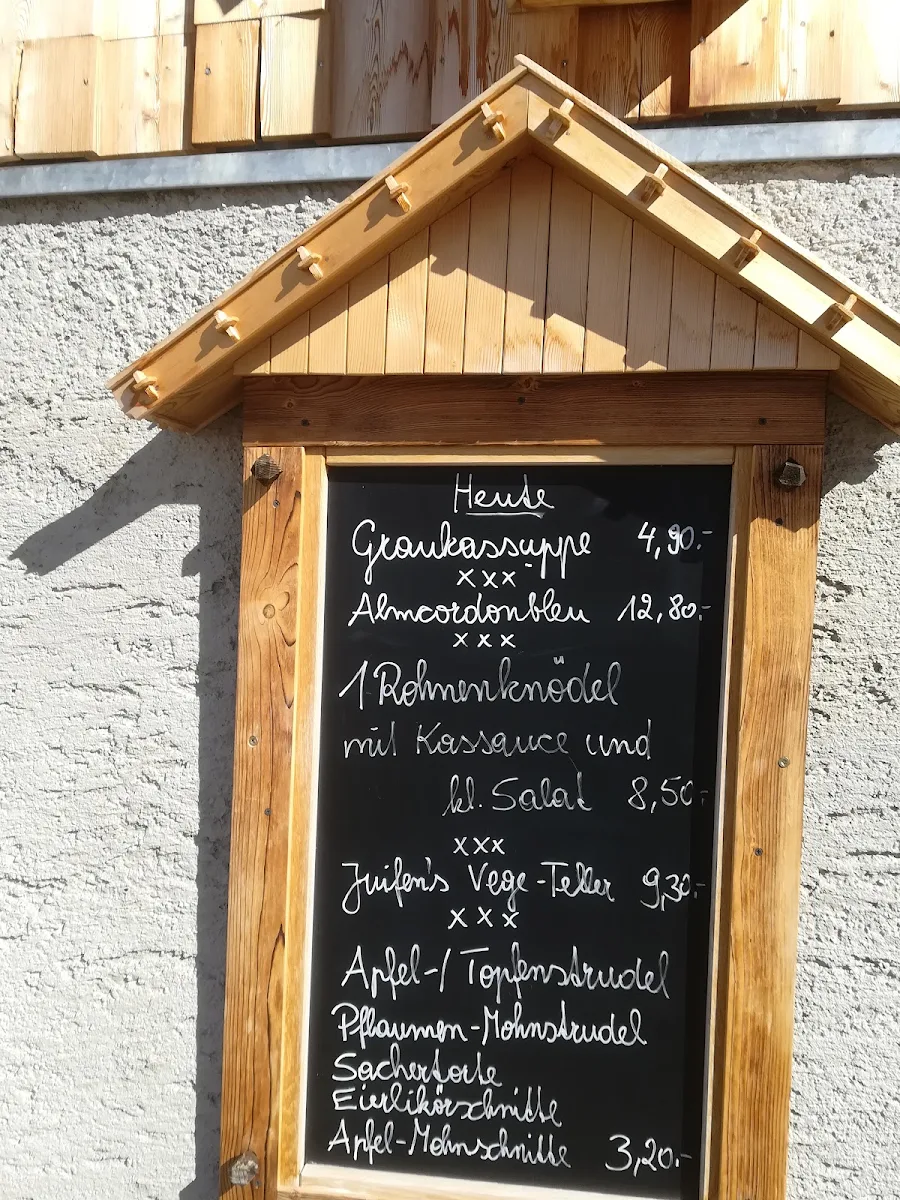 Heute
Graukassuppe 4,90.-
xxx
Almcordonbleu 12,80.-
xxx
1 Rohnenknödel
mit Kassauce und
kl. Salat 8,50.-
xxx
Juifen's Vege-Teller 9,30.-
xxx
Apfel-/Topfenstrudel
Pflaumen-Mohnstrudel
Sachertorte
Eierlikörschnitte
Apfel-Mohnschnitte 3,20.-